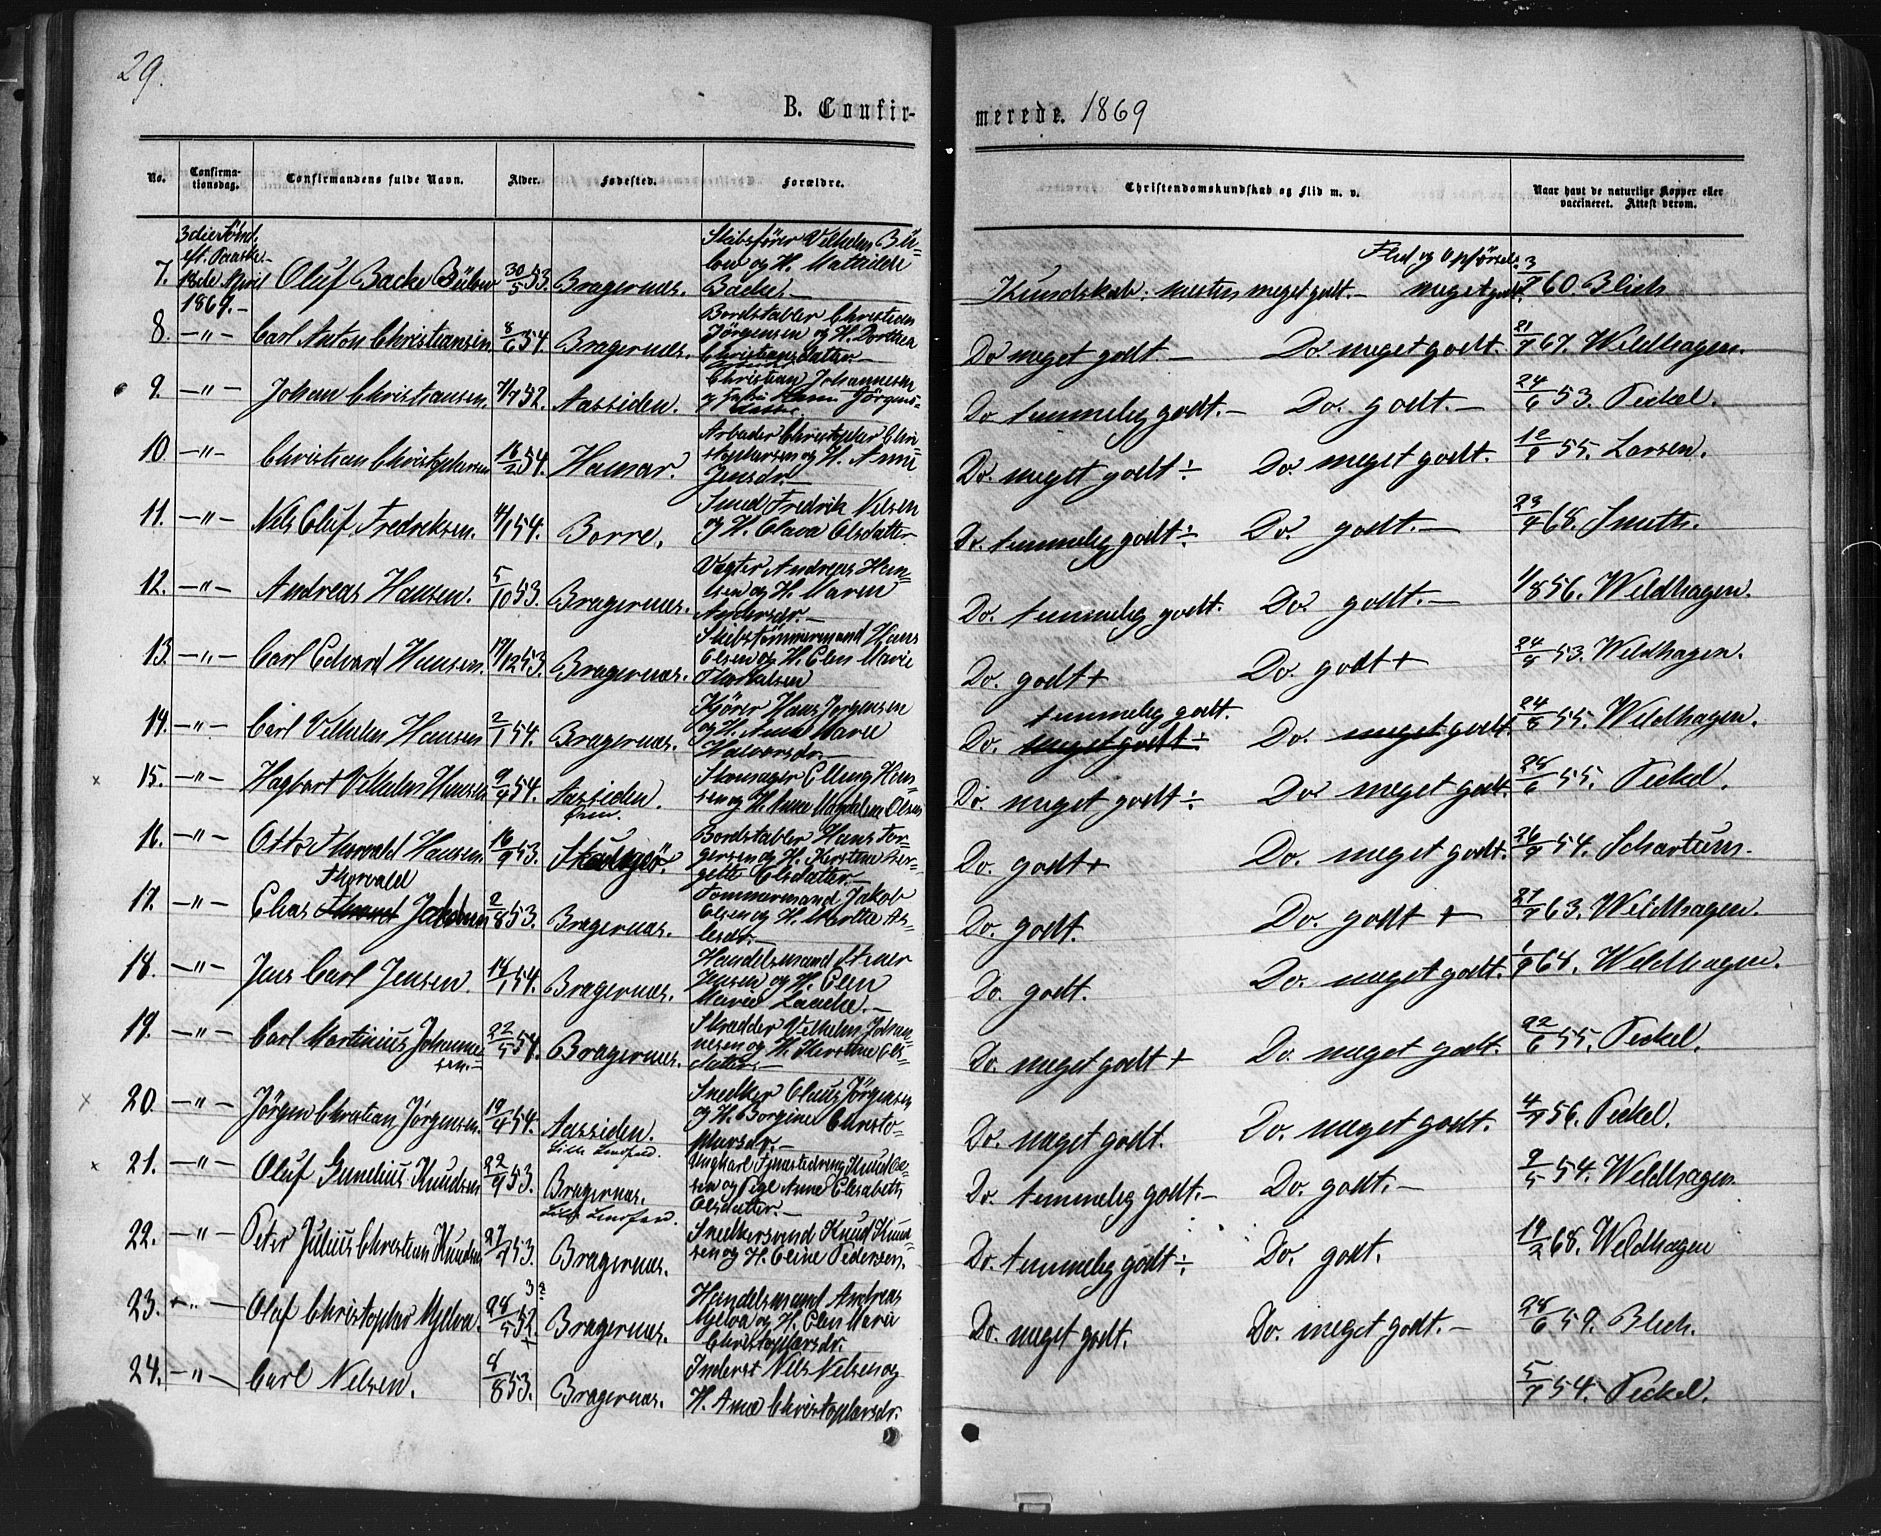 29.
B. Confir-
merede. 1869
No.
Confirma-
tionsdag.
Confirmandens fulde Navn.
Alder.
Fødested.
Forældre.
Christendomskundskab og Flid m. v.
Naar havt de naturlige Kopper eller
vaccineret. Attest derom.
3die Sønd.
eft. Paaske
18de April
1869.-
7. Oluf Backe Bülow 30/5 53. Bragernæs.
Skibsfører Vilhelm Bü-
low og H. Mathilde
Backe.-
Flid og Opførsel.
Kundskab: næsten meget godt.- meget godt. 3/7 60. Blich
8. -"- Carl Anton Christiansen 8/6 54. Bragernæs.
Bordstabler Christian
Jørgensen og H. Dorthea
Christiansdatter
Do meget godt - Do meget godt. 21/7 67. Wildhagen.
9. -"- Johan Christiansen. 7/7 52. Aassiden.
Christian Johannesen
Jørgens-
Do. temmelig godt.- Do. godt.- 24/6 53. Peckel.
10. -"- Christian Christophersen 16/2 54. Hamar.
Arbeider Christopher Chri-
stophersen og H. Anne
Jensdr.-
Do. meget godt ÷ Do. meget godt. 12/9 55. Larsen.
11. -"- Nils Oluf Fredriksen. 11/1 54. Borre.
Smed Fredrik Nilsen
og H. Olava Olsdatter
Do. temmelig godt ÷ Do. godt.- 23/4 68. Smith.
12. -"- Andreas Hansen. 5/10 53. Bragernæs.
Vægter Andreas Han-
sen og H. Maren
Andersdr.-
Do. temmelig godt. Do. godt.- 1/8 56. Wildhagen.
13. -"- Carl Edvard Hansen. 19/12 53. Bragernæs.
Skibstømmermand Hans
Olsen og H. Elen Marie
Thorkelsen
Do. godt + Do. godt + 24/8 53. Wildhagen.
14. -"- Carl Vilhelm Hansen 2/1 54. Bragernæs.
Kjører Hans Jørgensen
og H. Anne Marie
Halvorsdr.-
temmelig godt.
Do. meget godt ÷ Do. meget godt. 24/8 55. Wildhagen.
15. -"- Hagbart Vilhelm Hansen 9/9 54. Aassiden.
Skomager Elling Han-
sen og H. Anne Magdalena Olsen
Do. meget godt ÷ Do meget godt. 28/6 55. Peckel.
16. -"- Otto Thorvald Hansen 16/9 53.
Bordstabler Hans Tor-
gersen og H. Kirstine Ber-
gitte Olsdatter.-
Do. godt + Do. meget godt. 26/9 54. Schartum.
Thorvald
17. -"- Elias Jakobsen 2/8 53. Bragernæs.
Tømmermand Jakob
Olsen og H. Marthe As-
lesdr.-
Do. godt. Do. godt + 27/7 63. Wildhagen.
18. -"- Jens Carl Jensen. 18/1 54. Bragernæs.
Handelsmand Stener
Jensen og H. Elen
Marie Laache.-
Do. godt. Do. meget godt. 1/9 64. Wildhagen.
19. -"- Carl Martinius Johanne-
sen.-
22/5 54. Bragernæs.
Skrædder Vilhelm Johan-
nesen og H. Kirstine Ols-
datter.-
Do. meget godt + Do. meget godt. 22/6 55. Peckel.
20. -"- Jørgen Christian Jørgensen. 19/4 54. Aassiden.
Snedker Claus Jørgensen
og H. Borgine Christo-
phersdr.-
Do. meget godt. Do. meget godt. 4/7 56. Peckel.
Lille Landfald.
21. -"- Oluf Gunelius Knudsen 22/9 53. Bragernæs.
Ungkarl Tjenestedreng Knud Ol-
sen og Pige Anne Elisabeth
Olsdatter.-
Do. temmelig godt.- Do. godt.- 9/5 54. Wildhagen.
Lille Landfald.
22. -"- Peter Julius Christian Knudsen 27/7 53. Bragernæs.
Snedkersvend Knud Knud-
sen og H. Eline Pedersen.
Do. temmelig godt ÷ Do. godt. 19/2 68. Wildhagen
23. -"- Olaf Christopher Mjelva. 28/5 52. Bragernæs.
Handelsmand Andreas
Mjelva og H. Elen Marie
Christophersdr.
Do. meget godt. Do. meget godt.- 28/6 59. Blich.
24. -"- Carl Nilsen. 8/8 53. Bragernæs.
Inderst Nils Nilsen og
H. Anne Christophersdr.
5/7 54. Peckel.